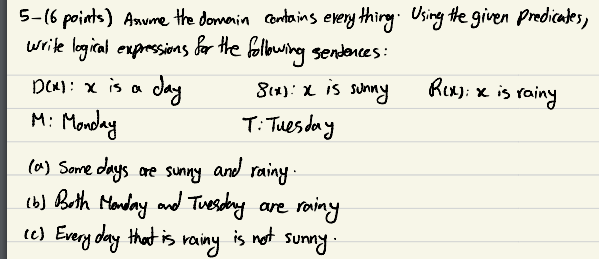 5-(6 points) Assume the domain contains everything. Using the given predicates,
write logical expressions for the following sentences:
D(x): x is a day S(x): x is sunny R(x): x is rainy
M: Monday T: Tuesday
(a) Some days are sunny and rainy.
(b) Both Monday and Tuesday are rainy
(c) Every day that is rainy is not sunny.